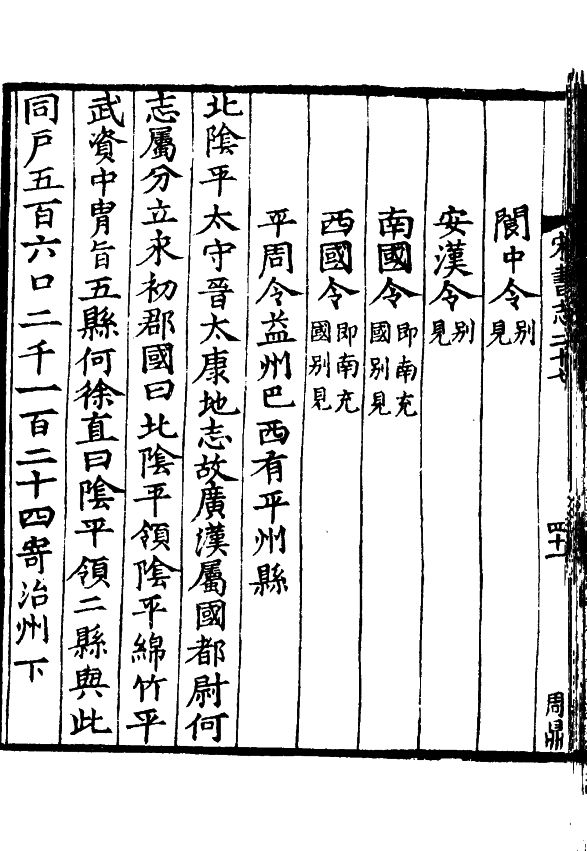 宋書志二十七
四十一
周鼎
閬中令別見
安漢令別見
南國令即南充國別見
西國令即南充國別見
平周令益州巴西有平州縣
北陰平太守晉太康地志故廣漢屬國都尉何
志屬分立永初郡國曰北陰平領陰平綿竹平
武資中胄旨五縣何徐直曰陰平領二縣與此
同戶五百六口二千一百二十四寄治州下